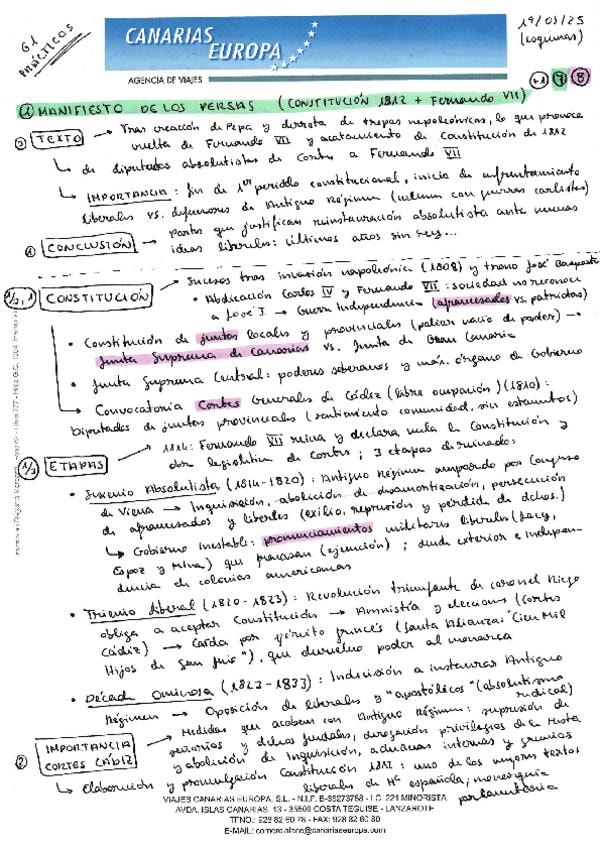 G1
PRÁCTICOS
CANARIAS
EUROPA
AGENCIA DE VIAJES
19/03/25
(esquemas)
+1 7 8
① MANIFIESTO DE LOS PERSAS (CONSTITUCIÓN 1812 + Fernando VII)
TEXTO → Tras creación de Pepa y derrota de tropas napoleónicas, lo que provoca
vuelta de Fernando VII y acatamiento de Constitución de 1812
↳ de diputados absolutistas de Cortes a Fernando VII
↳ IMPORTANCIA: fin de 1er periodo constitucional, inicio de enfrentamiento
liberales vs. defensores de Antiguo Régimen (culmen con guerras carlistas)
CONCLUSIÓN → partes que justifican reinstauración absolutista ante nuevas
ideas liberales: últimos años sin rey...
1/2, 1 CONSTITUCIÓN → Sucesos tras invasión napoleónica (1808) y trono José Bonaparte
• Abdicación Carlos IV y Fernando VII: sociedad no reconoció
a José I → Guerra Independencia (afrancesados vs. patriotas)
• Constitución de juntas locales y provinciales (paliar vacío de poder) →
Junta Suprema de Canarias vs. Junta de Gran Canaria
• Junta Suprema Central: poderes soberanos y máx. órgano de Gobierno
→ Convocatoria Cortes Generales de Cádiz (libre ocupación) (1810):
Diputados de juntas provinciales (sentimiento comunidad, sin estamentos)
1/3 ETAPAS → 1814: Fernando VII reina y declara nula la Constitución y
obra legislativa de Cortes; 3 etapas de reinado:
• Sexenio Absolutista (1814-1820): Antiguo Régimen amparado por Congreso
de Viena → Inquisición, abolición de desamortización, persecución
de afrancesados y liberales (exilio, represión y pérdida de dchos.)
↳ Gobierno inestable: pronunciamientos militares liberales (Lacy,
Espoz y Mina) que fracasan (ejecución); deuda exterior e indepen-
dencia de colonias americanas
• Trienio Liberal (1820-1823): Revolución triunfante de coronel Riego
obliga a aceptar Constitución → Amnistía y elecciones (Cortes
Cádiz) → Caída por ejército francés (Santa Alianza: "Cien Mil
Hijos de San Luis"), que devuelve poder al monarca
• Década Ominosa (1823-1833): Indecisión a instaurar Antiguo
Régimen → Oposición de liberales y "apostólicos" (absolutismo
radical)
② IMPORTANCIA
CORTES CÁDIZ
→ Medidas que acaben con Antiguo Régimen: supresión de
señoríos y dchos. feudales, derogación privilegios de la Mesta
y abolición de Inquisición, aduanas internas y gremios
↳ Elaboración y promulgación Constitución 1812: uno de los mejores textos
liberales de Hª española; monarquía
parlamentaria
VIAJES CANARIAS EUROPA, S.L. - N.I.F. E-35273788 - I.C. 221 MINORISTA
AVDA. ISLAS CANARIAS, 13 - 35509 COSTA TEGUISE - LANZAROTE
TFNO.: 928 82 60 78 - FAX: 928 82 60 80
E-MAIL: comercialace@canariaseuropa.com